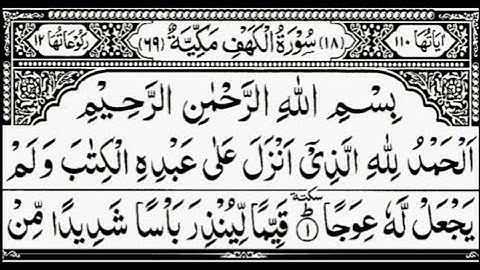 اٰيَاتُهَا ١١٠ (١٨) سُوْرَةُ الْكَهْفِ مَكِّيَّةٌ (٦٩) رُكُوْعَاتُهَا ١٢
بِسْمِ اللّٰهِ الرَّحْمٰنِ الرَّحِيْمِ
اَلْحَمْدُ لِلّٰهِ الَّذِيْٓ اَنْزَلَ عَلٰى عَبْدِهِ الْكِتٰبَ وَلَمْ
يَجْعَلْ لَّهٗ عِوَجًا ؕ سكتة ﴿١﴾ قَيِّمًا لِّيُنْذِرَ بَاْسًا شَدِيْدًا مِّنْ